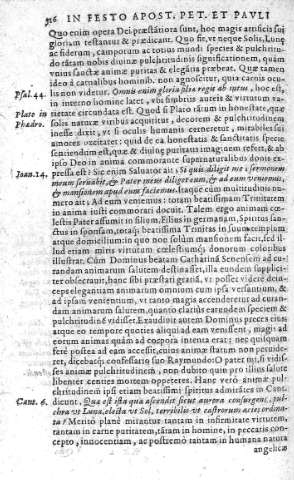 316 IN FESTO APOST. PET. ET PAVLI
Quo enim opera Dei præstãtiora sunt, hoc magis artificis sui
gloriam testantur & prædicant. Quo fit, vt neque Solis, Lunæ
ac siderum, camporum ac totius mundi species & pulchritu-
do tãtam nobis diuinæ pulchritudinis significationem, quàm
vnius sanctæ animæ puritas & elegãtia præbeat. Quæ tametsi
ideo à carnalibus hominib. non agnoscitur, quia carnis ocu-
lis non videtur. Omnis enim gloria filiæ regis ab intus, hoc est,
Psal. 44.
in interno homine latet, vbi submilibus auteis & virtutum va-
rietate circundata est. Quod si Plato tãtum in honestate, quæ
Plato in
Phædro.
solis naturæ viribus acquiritur, decorem & pulchritudinem
inesse dixit, vt si oculis humanis cerneretur, mirabiles sui
amores excitaret: quid de ea honestatis & sanctitatis specie
sentiendum est, quæ & diuinę puritatis imaginem refert, & ab
ipso Deo in anima commorante supernaturalibus donis ex-
pressa est? Sic enim Saluator ait, Si quis diligit me sermonem
Ioan. 14.
meum seruabit, & Pater meus diliget eum, & ad eum veniemus,
& mansionem apud eum faciemus. Itaque cùm multitudinis nu-
mero ait, Ad eum veniemus: totam beatissimam Trinitatem
in anima iusti commorari docuit. Talem ergo animam cœ-
lestis Pater assumit in filiam, Filius in germanam, Spiritus san-
ctus in sponsam, totaq́; beatissima Trinitas in suum templum
atque domicilium: in quo non solùm mansionem facit, sed il-
lud etiam miris virtutum cœlestiumq́; donorum coloribus
illustrat. Cùm Dominus beatam Catharinã Senensem ad cu-
randam animarum salutem destinasset, illa eundem supplici-
ter obsecrauit, hanc sibi præstari gratiã, vt posset videre deti-
cepsq; elegantiam animarum omnium cum ipsa versantium, &
ad ipsam venientium, vt tanto magis accenderetur ad curan-
dam animarum salutem, quanto clariùs earundem speciem &
pulchritudinẽ vidisset. Exaudiuit autem Dominus preces eius,
atque eo tempore quoties aliqui ad eam venissent, magis ad
eorum animas quàm ad corpora intenta erat; nec quidquam
ferè postea ad eam accessit, cuius animæ statum non præuide-
ret, dicebatq́; confessario suo Raymundo: O pater mi, si vidis-
ses animæ pulchritudinem, non dubito quin pro illius salute
libenter centies mortem oppeteres. Hanc verò animæ pul-
chritudinem ipsi etiam beatissimi spiritus admirãtes in Cant.
dicunt. Quæ est ista quæ ascendit sicut aurora consurgens, pul-
Cant. 6.
chra vt Luna, electa vt Sol, terribilis vt castrorum acies ordina-
ta? Meritò planè mirantur tantam in infirmitate virtutem,
tantam in carne puritatem, tãtam in homine, in peccatis con-
cepto, innocentiam, ac postremò tantam in humana natura
angelicæ